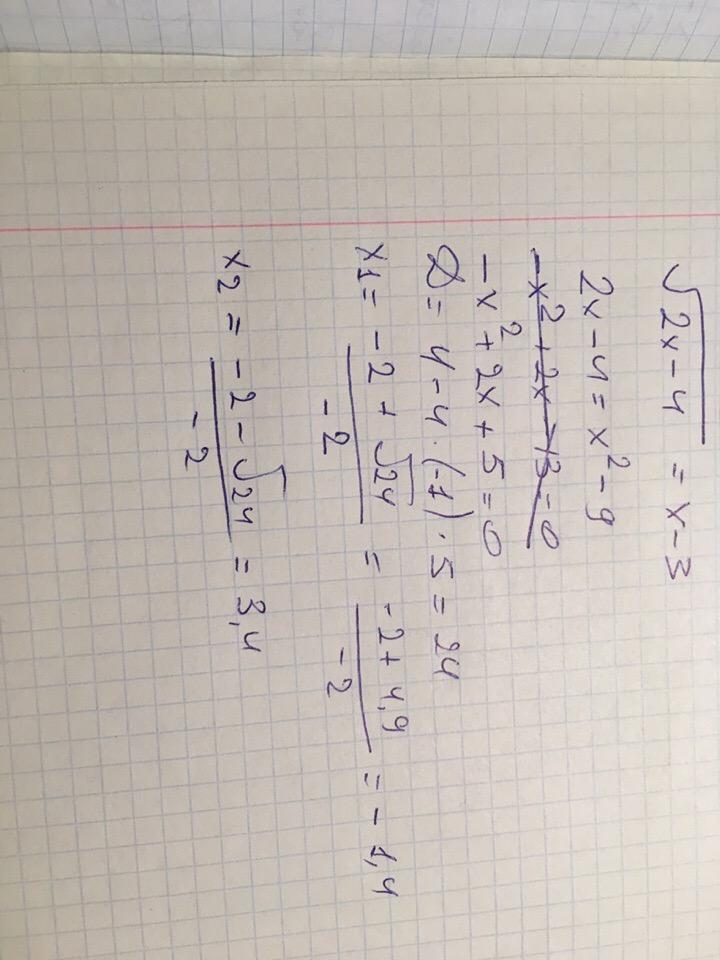 √2x-4 = x-3
2x-4 = x²-9
-x²+2x+3=0
-x²+2x+5=0
D = 4-4·(-1)·5 = 24
x1 = -2+√24/-2 = -2+4,9/-2 = -1,4
x2 = -2-√24/-2 = 3,4